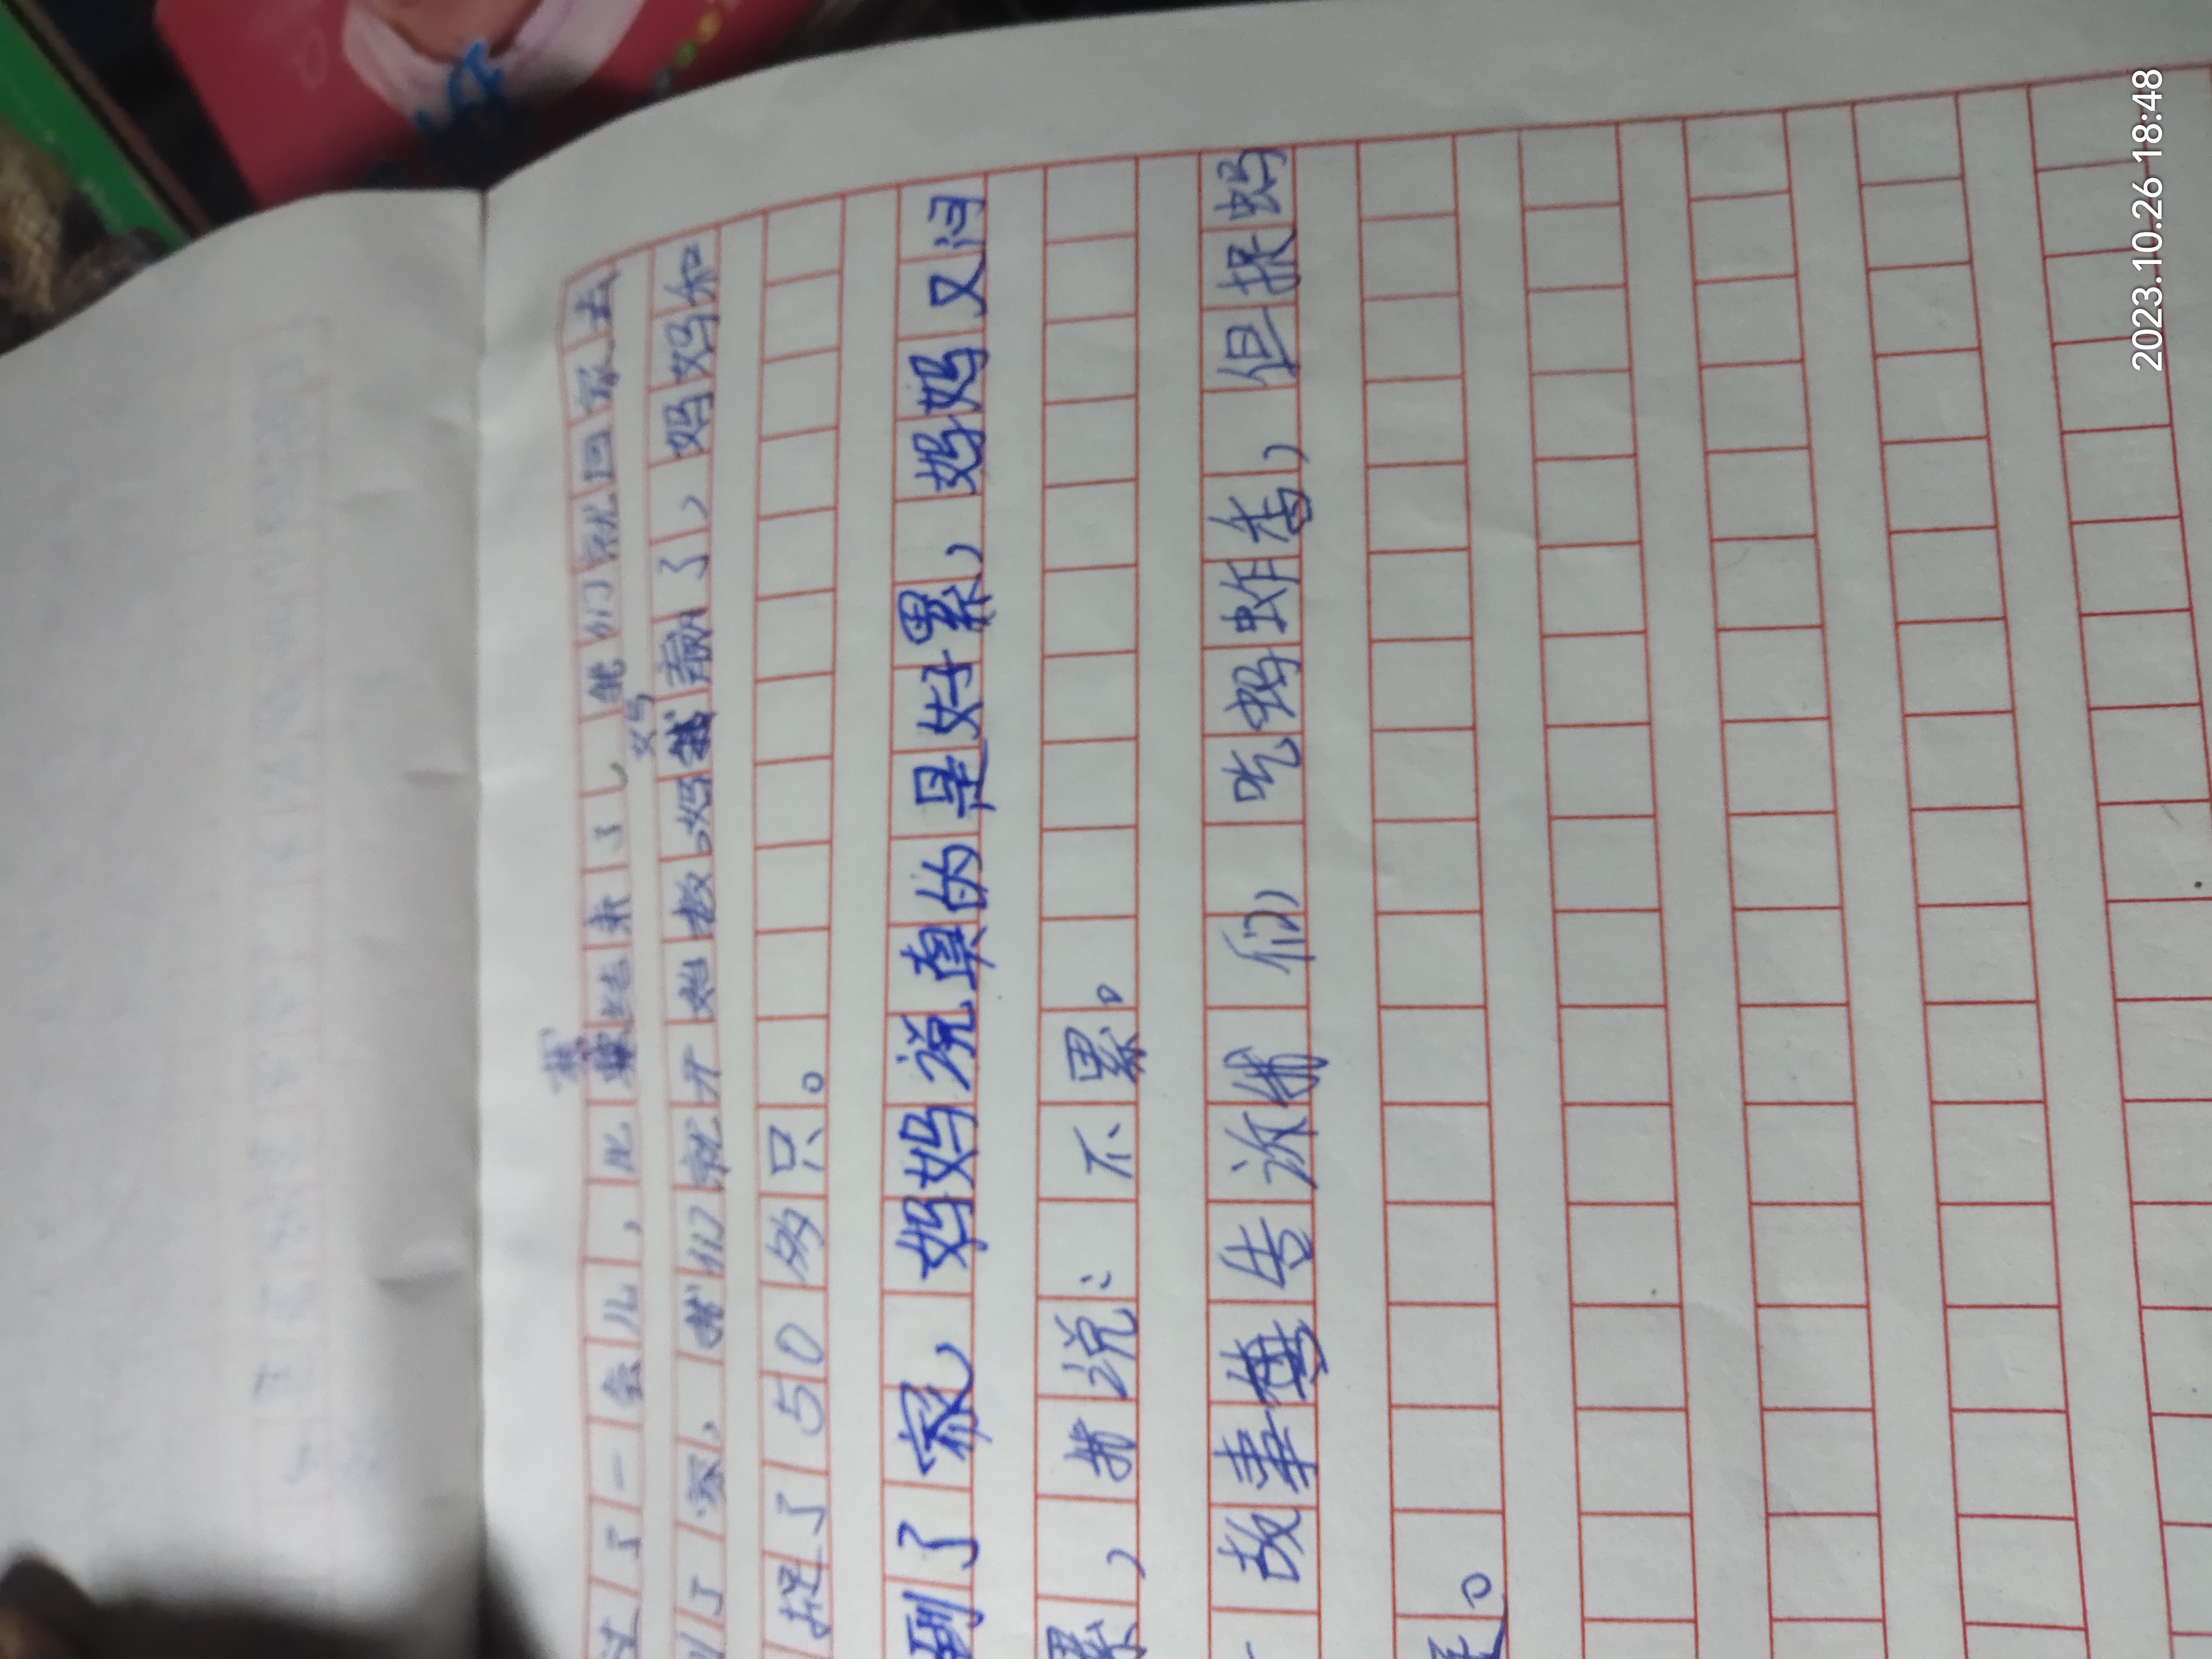 过了一会儿，比赛结束了，我们就回家去
到了家，我们就开始数。妈妈赢了，妈妈
捉了50多只。
到了家，妈妈说真的是好累，妈妈又问
累，我说：不累。
故事告诉我们，吃蚂蚱香，但捉蚂
2023.10.26 18:48